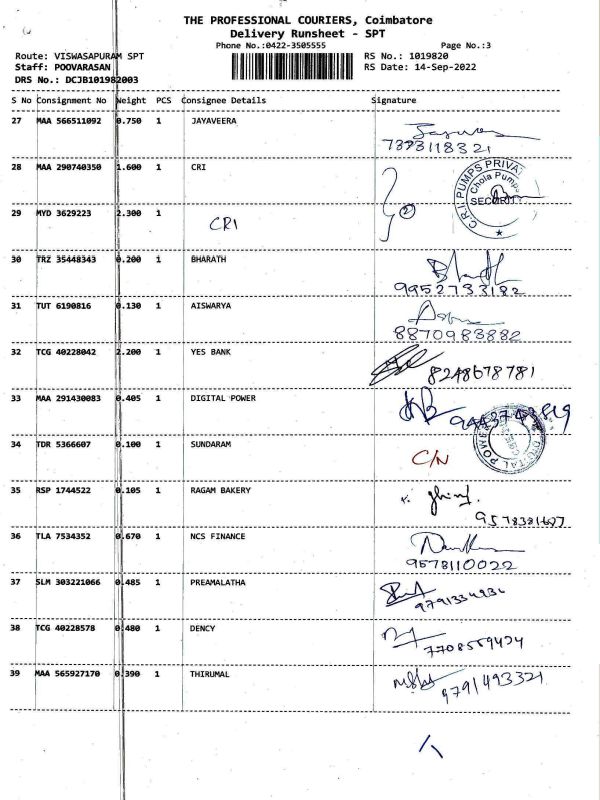 THE PROFESSIONAL COURIERS, Coimbatore
Delivery Runsheet - SPT
Phone No.:0422-3505555 Page No.:3
Route: VISWASAPURAM SPT RS No.: 1019820
Staff: POOVARASAN RS Date: 14-Sep-2022
DRS No.: DCJB101982003
S No Consignment No Weight PCS Consignee Details Signature
27 MAA 566511092 0.750 1 JAYAVEERA
7373118321
28 MAA 290740350 1.600 1 CRI
C.R.I. PUMPS PRIVA
Chola Pumps
SECURITY
29 MYD 3629223 2.300 1 CRI 2
30 TRZ 35448343 0.200 1 BHARATH
9952733182
31 TUT 6190816 0.130 1 AISWARYA
8870983882
32 TCG 40228042 2.200 1 YES BANK
8248678781
33 MAA 291430083 0.405 1 DIGITAL POWER
DIGITAL POWER
34 TDR 5366607 0.100 1 SUNDARAM C/N
35 RSP 1744522 0.105 1 RAGAM BAKERY
36 TLA 7534352 0.670 1 NCS FINANCE
9578110022
37 SLM 303221066 0.485 1 PREAMALATHA
38 TCG 40228578 0.480 1 DENCY
39 MAA 565927170 0.390 1 THIRUMAL
9791493321